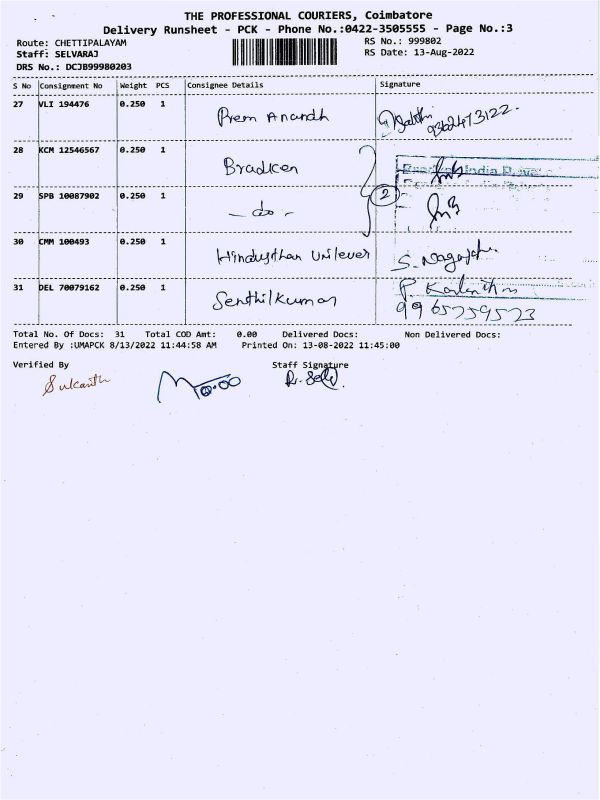 THE PROFESSIONAL COURIERS, Coimbatore
Delivery Runsheet - PCK - Phone No.:0422-3505555 - Page No.:3
Route: CHETTIPALAYAM RS No.: 999802
Staff: SELVARAJ RS Date: 13-Aug-2022
DRS No.: DCJB99980203
S No Consignment No Weight PCS Consignee Details Signature
27 VLI 194476 0.250 1 Prem Anandh
9362473122.
28 KCM 12546567 0.250 1 Bradken
29 SPB 10087902 0.250 1 - do - 2
30 CMM 100493 0.250 1 Hindusthan Unilever S.
31 DEL 70079162 0.250 1 Senthilkumar P.
9965759523
Total No. Of Docs: 31 Total COD Amt: 0.00 Delivered Docs: Non Delivered Docs:
Entered By :UMAPCK 8/13/2022 11:44:58 AM Printed On: 13-08-2022 11:45:00
Verified By Staff Signature
Sukanth